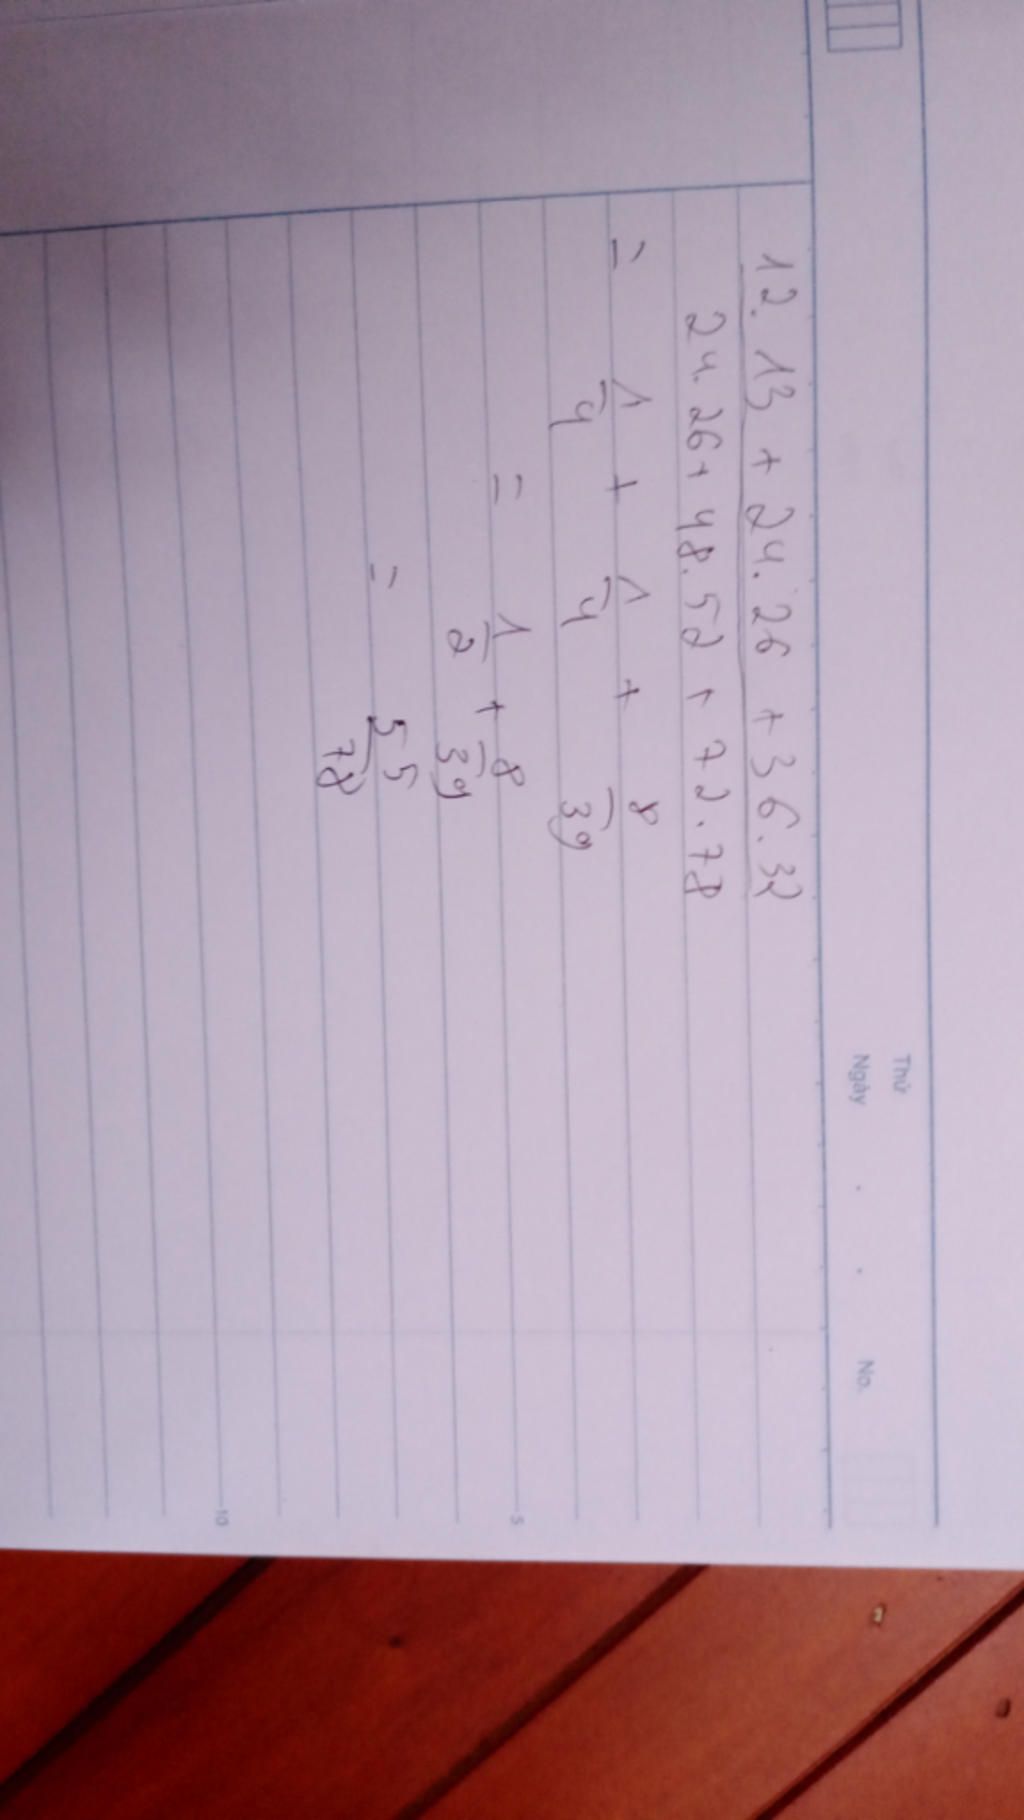 Thứ
Ngày . . No.
12.13 + 24.26 + 36.32
24.26 + 48.52 + 72.78
= 1/4 + 1/4 + 8/39
= 1/2 + 8/39
= 55/78
5
10